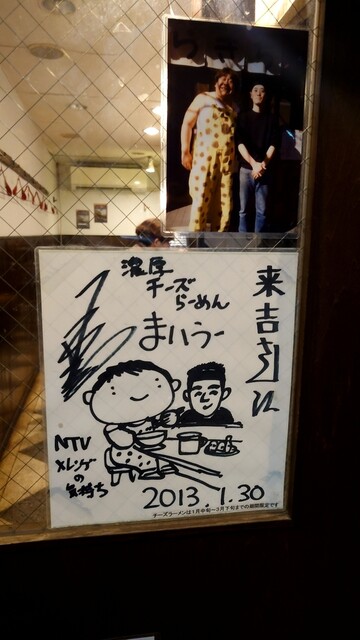 濃厚
チーズ
らーめん
まいうー
来吉さん江
NTV
メレンゲ
の
気持ち
2013.1.30
チーズラーメンは1月中旬~3月下旬までの期間限定です